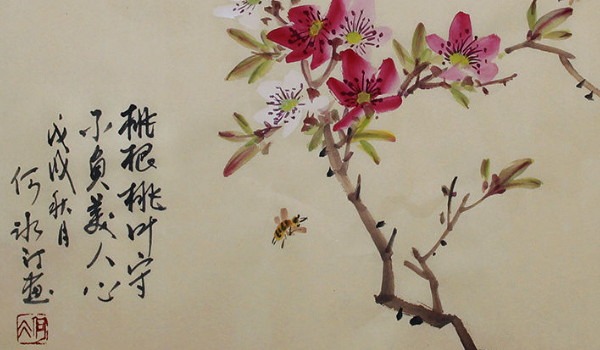 桃根桃叶守
不負美人心
戊戌秋月
何冰汀畫